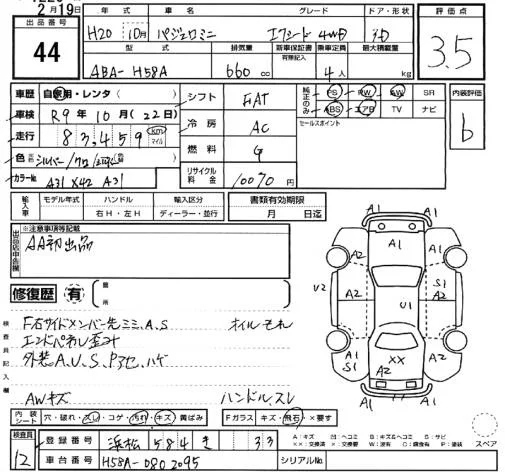 2月19日
出品番号
44
年式 車名 グレード ドア・形状
H20 10月 パジェロミニ エクシード 4WD 3D
評価点
3.5
型式 排気量 新車保証 有無記入 乗車定員 最大積載量
ABA-H58A 660 cc 4人 kg
車歴 自家用・レンタ( )
車検 R9年10月(22日)
走行 83,459 km マイル
色 シルバー/クロ
カラーNo. A31 X42 A31
シフト FAT
冷房 AC
燃料 G
リサイクル料金 10070円
純正のみ PS PW AW SR
ABS エアB TV ナビ
セールスポイント
内装評価
b
輸入車 モデル年式 ハンドル 輸入区分
年 右H・左H ディーラー・並行
書類有効期限
月 日迄
出品店申告欄 ※注意事項等記載
AA初出品
修復歴 有 箇所
検査員記入欄
F右サイドメンバー先ミミA.S オイルモレ
エンドパネル歪み
外装A.U.S.Pアセ.ハゲ
AWキズ ハンドルスレ
内装シート 穴・破れ・スレ・コゲ・汚れ・キズ・黄ばみ
Fガラス キズ・飛石・×要す
検査員
12
登録番号 浜松 584 き 33
車台番号 H58A-0802095
シリアルNo.
A1 A1 A1
A2 A1 A2
U2 A2 U1 S1 A2
A2 XX A2
A1 S1 A2
A1 A1
A:キズ U:ヘコミ B:キズ&ヘコミ S:サビ
××:交換済 ×:要交換 W:波有 C:腐食有 P:塗装
スペア